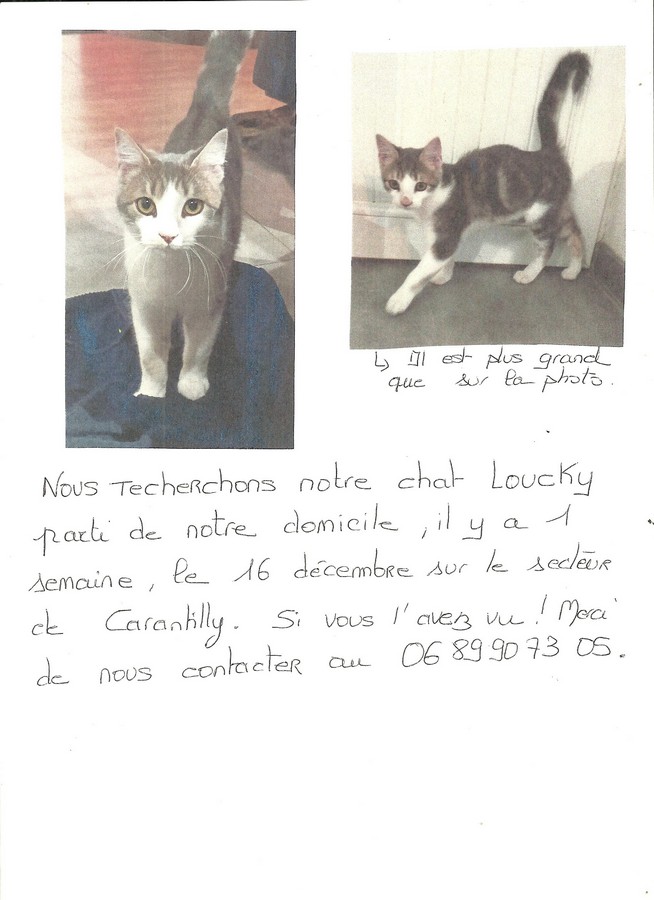 ↳ Il est plus grand
que sur la photo.
Nous recherchons notre chat Loucky
parti de notre domicile, il y a 1
semaine, le 16 décembre sur le secteur
de Carantilly. Si vous l'avez vu! Merci
de nous contacter au 06 89 90 73 05.